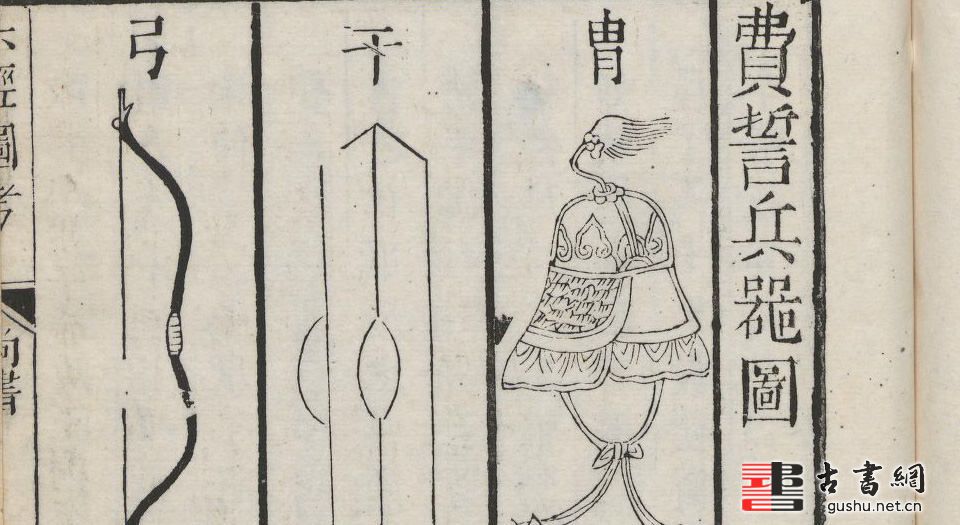 費誓兵器圖
冑
干
弓
六經圖考
尚書
古書網
gushu.net.cn